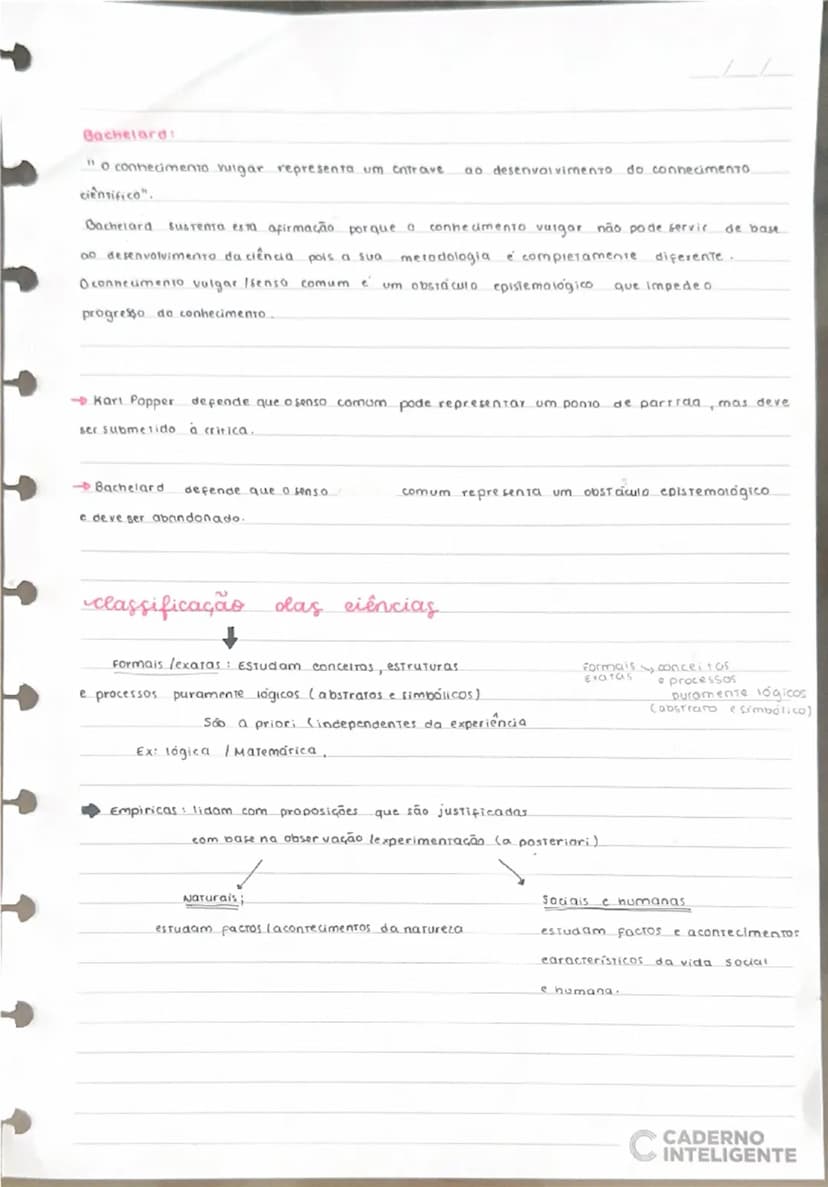 __/__/__
Bachelard:
"O conhecimento vulgar representa um entrave ao desenvolvimento do conhecimento
ciêntífico".
Bachelard sustenta esta afirmação porque o conhecimento vulgar não pode servir de base
ao desenvolvimento da ciência pois a sua metodologia é completamente diferente.
O conhecimento vulgar /senso comum é um obstáculo epistemológico que impede o
progresso do conhecimento.
→ Karl Popper defende que o senso comum pode representar um ponto de partida, mas deve
ser submetido à crítica.
→ Bachelard defende que o senso comum representa um obstáculo epistemológico
e deve ser abandonado.
classificação das ciências
Formais /exatas: Estudam conceitos, estruturas
e processos puramente lógicos (abstratos e simbólicos)
São a priori (independentes da experiência
Ex: lógica / Matemática.
Formais → conceitos
Exatas e processos
puramente lógicos
(abstrato e simbólico)
➡ Empíricas: lidam com proposições que são justificadas
com base na observação /experimentação (a posteriori)
Naturais;
estudam factos /acontecimentos da natureza
Sociais e humanas
estudam factos e acontecimentos
característicos da vida social
e humana.
CADERNO
INTELIGENTE